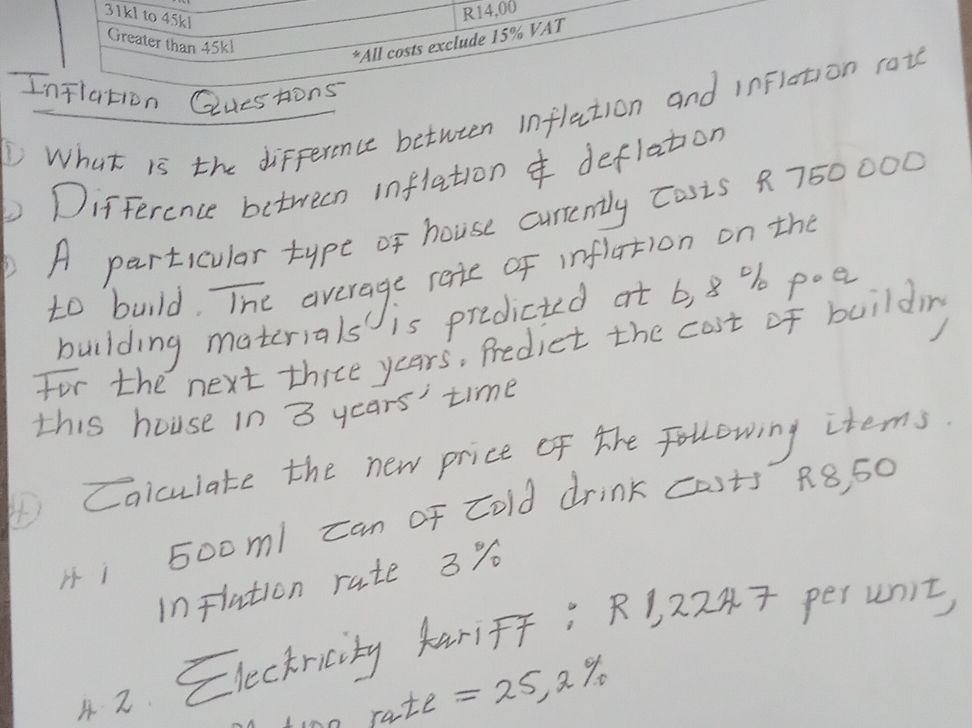 31kl to 45kl
R14,00
Greater than 45kl
*All costs exclude 15% VAT
Inflation Questions
① What is the difference between inflation and inflation rate
Difference between inflation & deflation
A particular type of house currently costs R 750 000
to build. The average rate of inflation on the
building materials is predicted at 6,8 % p.a
For the next three years. Predict the cost of buildin
this house in 3 years' time
④ Calculate the new price of the following items.
4.1 500ml can of cold drink costs R8,50
inflation rate 3%
4.2. Electricity tariff : R1,2247 per unit,
rate = 25,2%